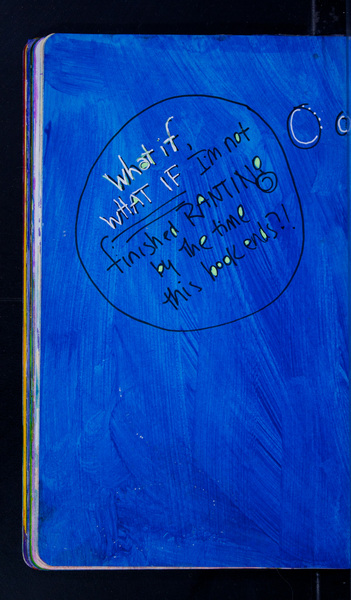 What if,
WHAT IF I'm not
finished RANTING
by the time
this book ends?!
Oo